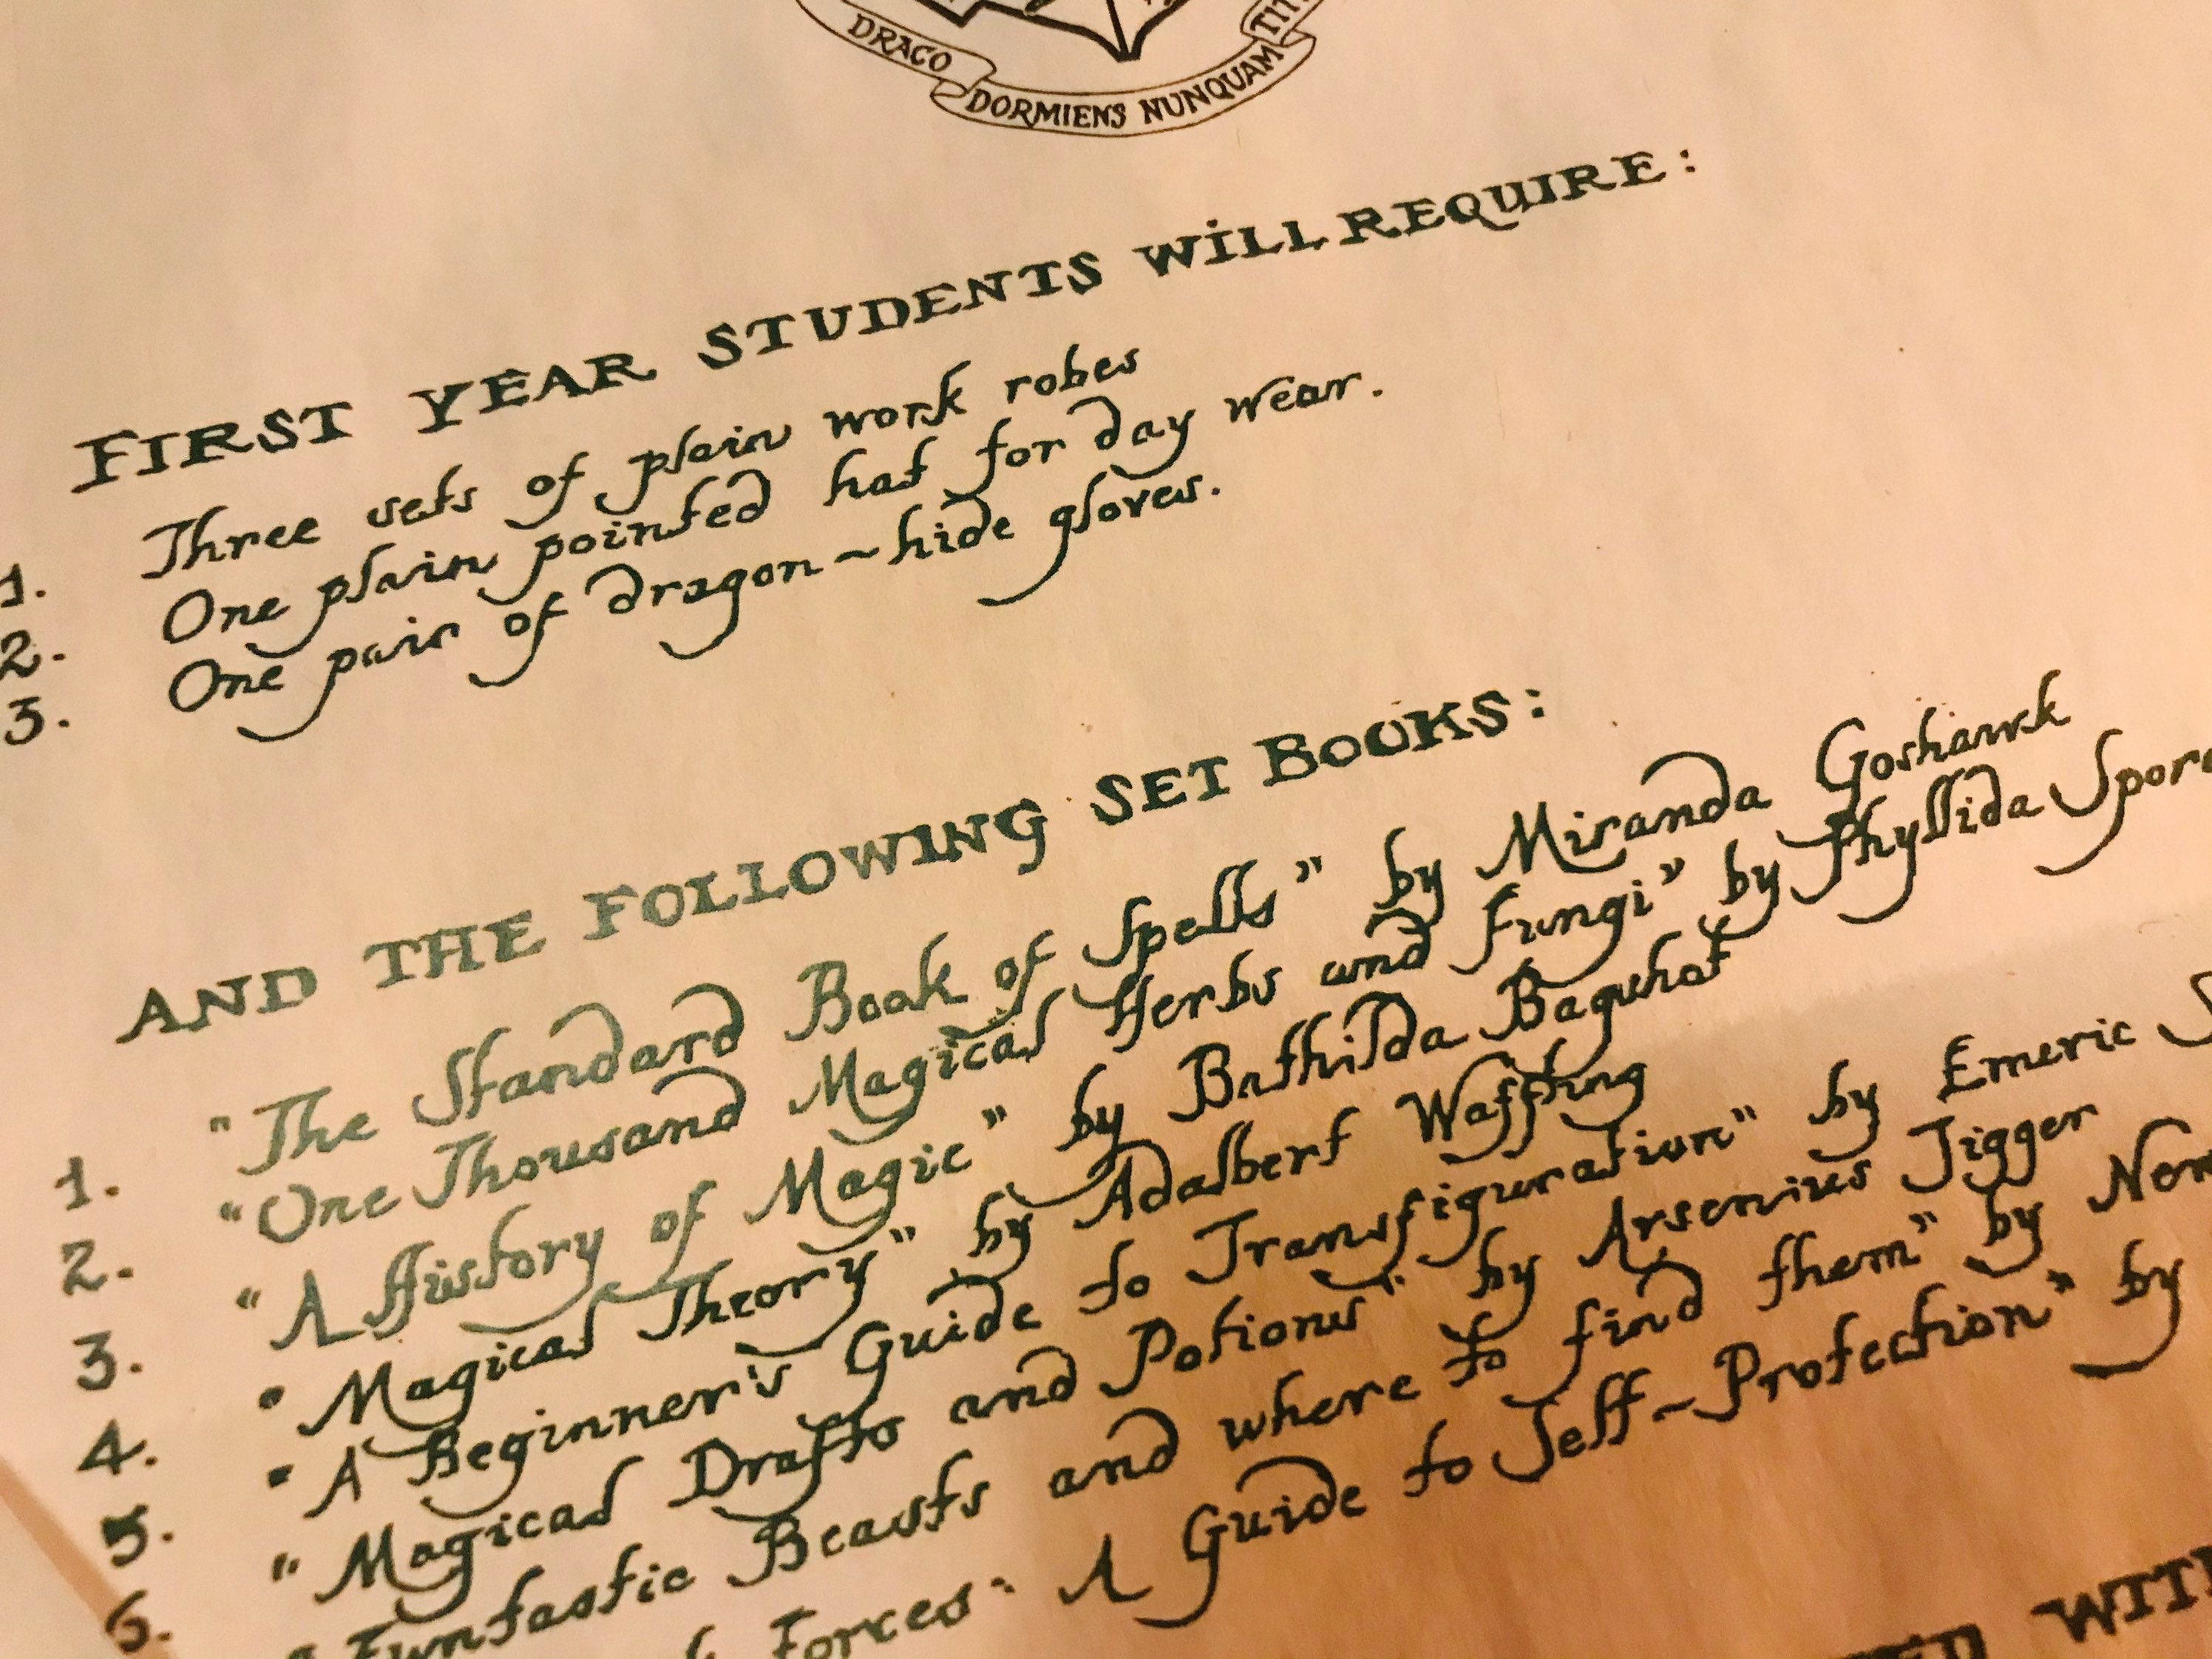 DRACO DORMIENS NUNQUAM TIT
FIRST YEAR STUDENTS WILL REQUIRE:
1. Three sets of plain work robes
2. One plain pointed hat for day wear.
3. One pair of dragon~hide gloves.
AND THE FOLLOWING SET BOOKS:
1. "The Standard Book of Spells" by Miranda Goshawk
2. "One Thousand Magical Herbs and Fungi" by Phyllida Spore
3. "A History of Magic" by Bathilda Bagshot
4. "Magical Theory" by Adalbert Waffling
5. "A Beginner's Guide to Transfiguration" by Emeric S
6. "Magical Drafts and Potions" by Arsenius Jigger
"Fantastic Beasts and where to find them" by
Forces: A Guide to Self~Protection" by
WITH